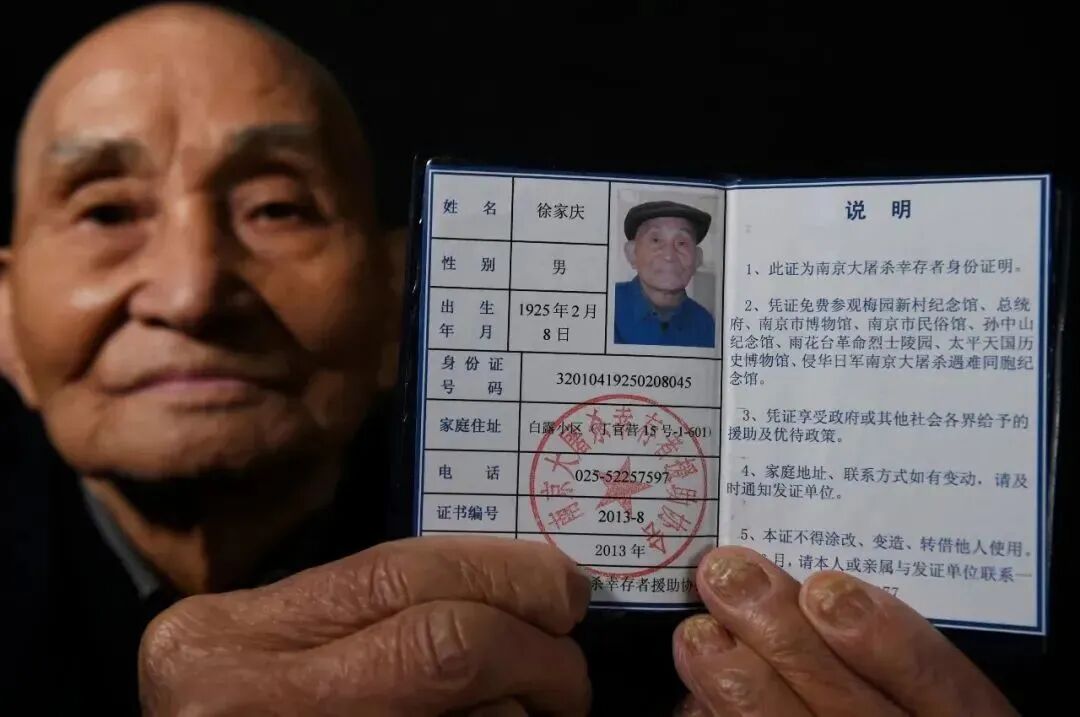 姓 名
徐家庆
性 别
男
出 生
年 月
1925 年 2 月
8 日
身 份 证
号 码
32010419250208045
家庭住址
白露小区(丁官营 15 号-1-601)
电 话
025-52257597
证书编号
2013-8
2013 年
杀幸存者援助协
南京大屠杀幸存者援助协会
说 明
1、此证为南京大屠杀幸存者身份证明。
2、凭证免费参观梅园新村纪念馆、总统
府、南京市博物馆、南京市民俗馆、孙中山
纪念馆、雨花台革命烈士陵园、太平天国历
史博物馆、侵华日军南京大屠杀遇难同胞纪
念馆。
3、凭证享受政府或其他社会各界给予的
援助及优待政策。
4、家庭地址、联系方式如有变动，请及
时通知发证单位。
5、本证不得涂改、变造、转借他人使用。
月，请本人或亲属与发证单位联系一
77